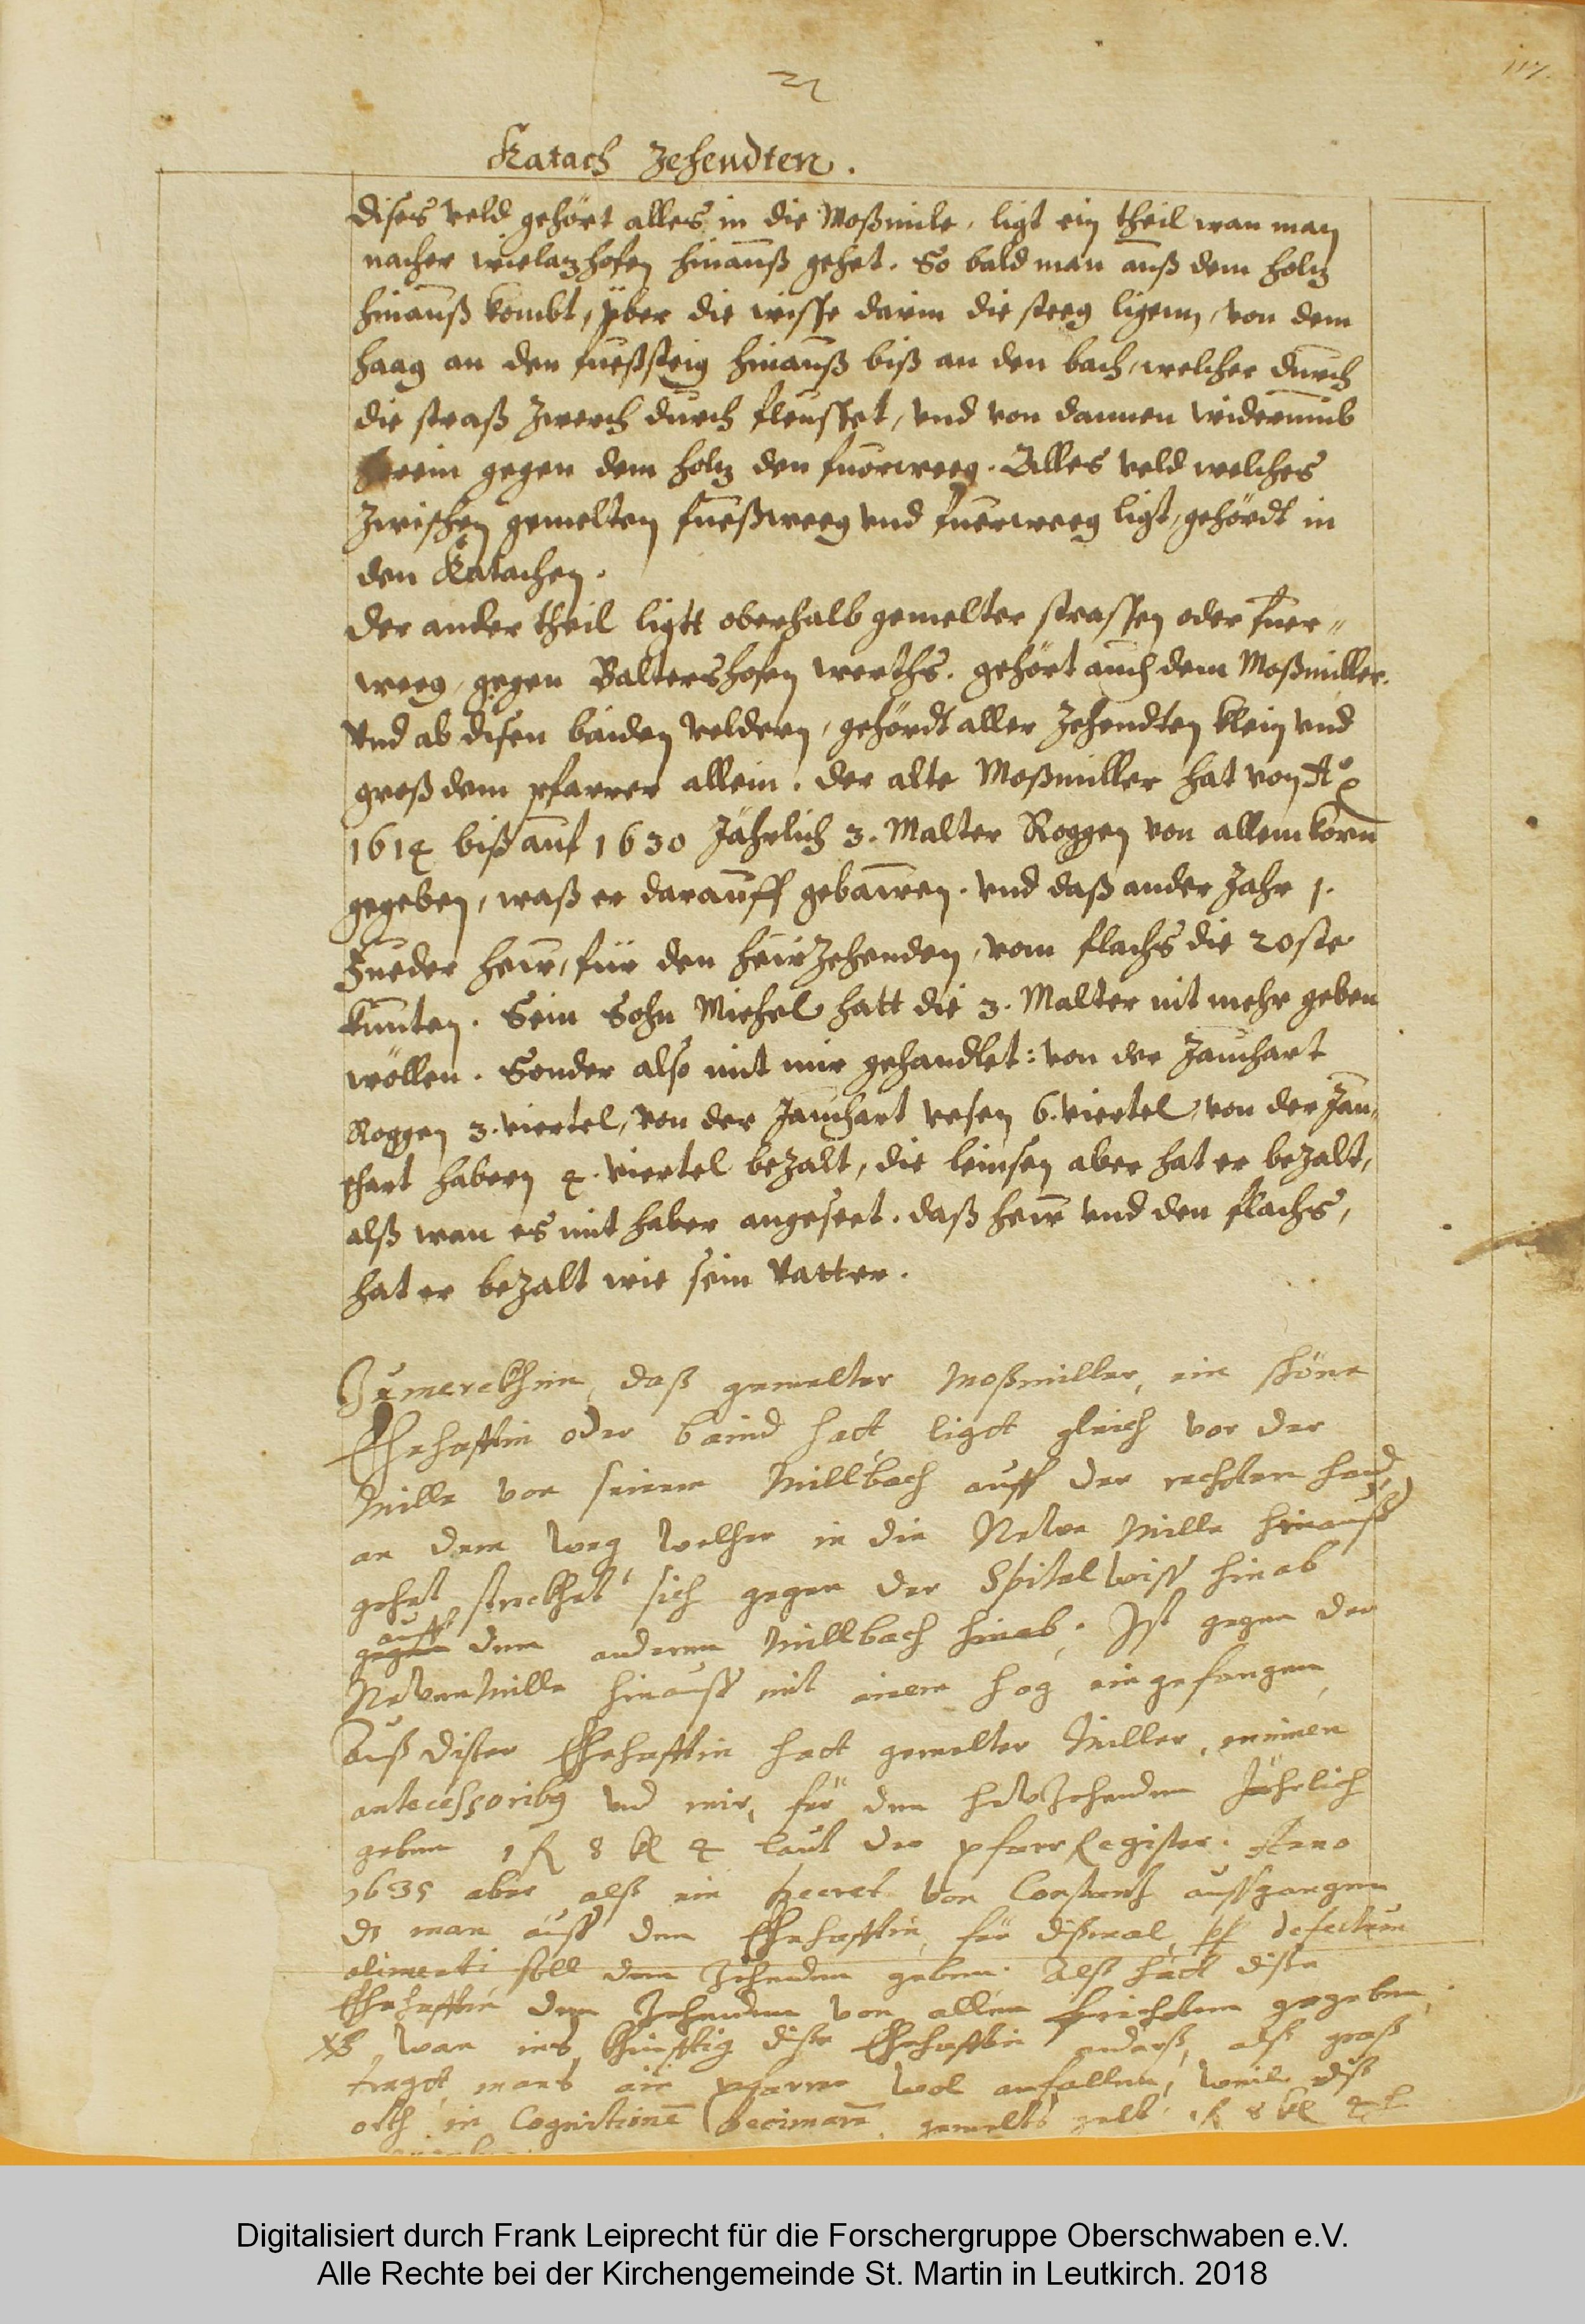 117.
Katach Zehendten.
Dises veld gehört alles in die Moßmile, ligt ein theil wan man
nacher wielazhofen hinauß gehet. So bald man auß dem holz
hinauß kombt, yber die wisse darin die steeg ligenn, von dem
haag an den fueßsteig hinauß biß an den bach, welcher durch
die straß zwerch durch fleusset, vnd von dannen widerumb
herein gegen dem holz den fuorweeg. Alles veld welches
zwischen gemelten fueßweeg vnd fuerweeg ligt, gehördt in
den Katachen.
Der ander theil ligtt oberhalb gemelter strassen oder fuer„
weeg, gegen Baltershofen werths. gehört auch dem Moßmiller.
Vnd ab disen baiden veldern, gehördt aller Zehendten klein vnd
groß dem pfarrer allein. Der alte Moßmiller hat von Aº
1614 biß auf 1630 Jährlich 3. Malter Roggen von allem korn
gegeben, waß er darauff gebawen. Vnd daß ander Jahr 1.
Fueder hew, für den hewzehenden, vom flachs die 20ste
kauten. Sein Sohn Michel hatt die 3. Malter nit mehr geben
wöllen. Sonder also mit mir gehandlet: von der Jauchart
Roggen 3. viertel, von der Jauchart vesen 6. viertel, von der Jau„
chart habern 4. viertel bezalt, die leinsen aber hat er bezalt,
alß wan es mit haber angeseet. daß hew vnd den flachs,
hat er bezalt wie sein Vatter.
Zumerckhen, daß gemelter Moßmiller, ein schöne
Ehehafftin oder baind hatt, ligtt gleich vor der
Mille von seinem Millbach auff der rechten hand,
an dem weg welcher in die Newe Mille hinauß
gehet, streckhet sich gegen der Spitalwiss hinab
auff
gegen dem anderen Millbach hinab. Ist gegen der
Newen Mille hinauß mit einem hag eingefangen,
Auß diser Ehehafftin hatt gemelter Miller, meinen
antecessoribus vnd mir, für den hewzehenden Jährlich
geben 1 fl 8 kr 4 laut der pfarr Register. Anno
1635 aber alß ein Decret von Constantz außgangen
dz man auß den Ehehafftin, für dißmal, defectum
alimenti soll den Zehenden geben. Alß hatt dise
Ehehafftin den Zehenden von allen frichten gegeben.
NB wan ins khinfftig dise Ehehafftin anderß, alß graß
tragt, mans ein pfarrer wol anfallen, weil diß
orth in Cognitione Decimarum gemelts gelt 1 fl 8 kr 4
Digitalisiert durch Frank Leiprecht für die Forschergruppe Oberschwaben e.V.
Alle Rechte bei der Kirchengemeinde St. Martin in Leutkirch. 2018